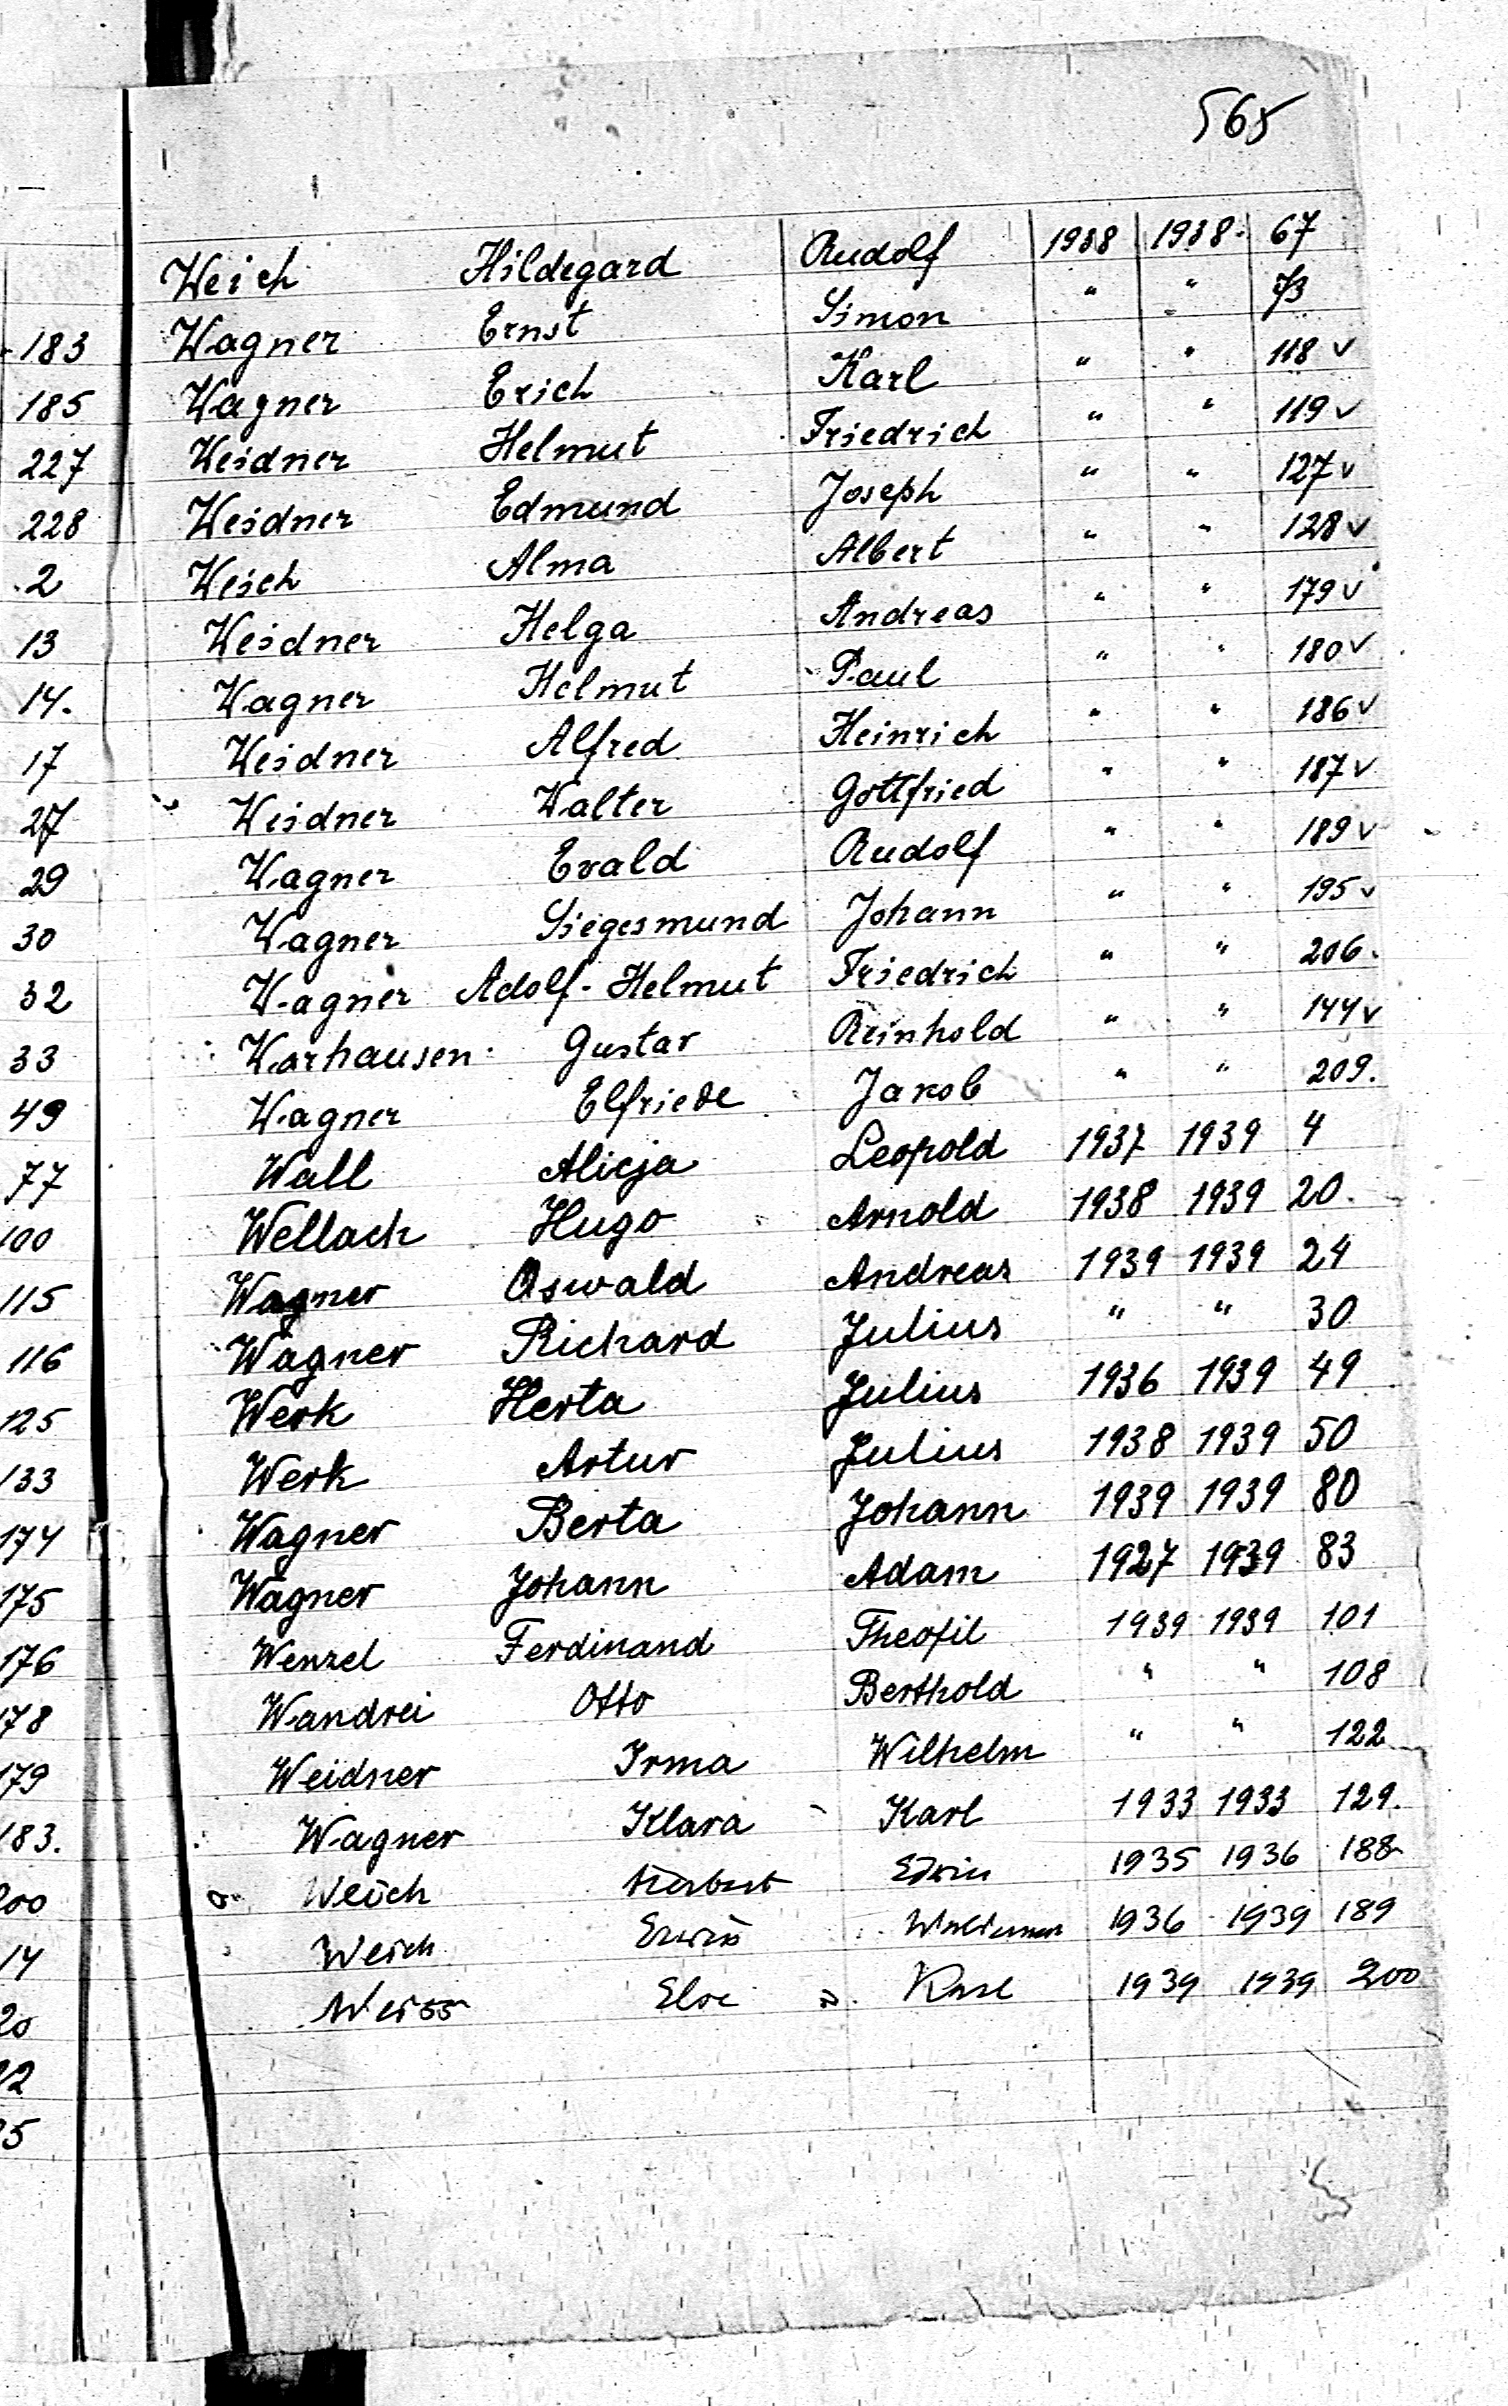 565
Weich Hildegard Rudolf 1938 1938. 67
183 Wagner Ernst Simon " " 73
185 Wagner Erich Karl " " 118 v
227 Weidner Helmut Friedrich " " 119 v
228 Weidner Edmund Joseph " " 127 v
2 Weich Alma Albert " " 128 v
13 Weidner Helga Andreas " " 179 v
14. Wagner Helmut Paul " " 180 v
17 Weidner Alfred Heinrich " " 186 v
27 Weidner Walter Gottfried " " 187 v
29 Wagner Evald Rudolf " " 189 v
30 Wagner Siegesmund Johann " " 195 v
32 Wagner Adolf-Helmut Friedrich " " 206.
33 Warhausen Gustav Reinhold " " 144 v
49 Wagner Elfriede Jakob " " 209.
77 Wall Alicja Leopold 1937 1939 4
100 Wellach Hugo Arnold 1938 1939 20.
115 Wagner Oswald Andreas 1939 1939 24
116 Wagner Richard Julius " " 30
125 Werk Herta Julius 1936 1939 49
133 Werk Artur Julius 1938 1939 50
174 Wagner Berta Johann 1939 1939 80
175 Wagner Johann Adam 1927 1939 83
176 Wenzel Ferdinand Theofil 1939 1939 101
178 Wandrei Otto Berthold " " 108
179 Weidner Irma Wilhelm " " 122
183. Wagner Klara Karl 1933 1933 129.
200 Weich Herbert Edwin 1935 1936 188
14 Weich Erwin Waldemar 1936 1939 189
20 Weiss Else Karl 1939 1939 200